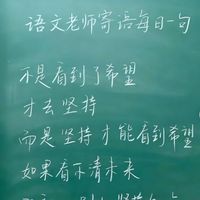 语文老师寄语每日一句
不是看到了希望
才去坚持
而是坚持才能看到希望
如果看不清未来